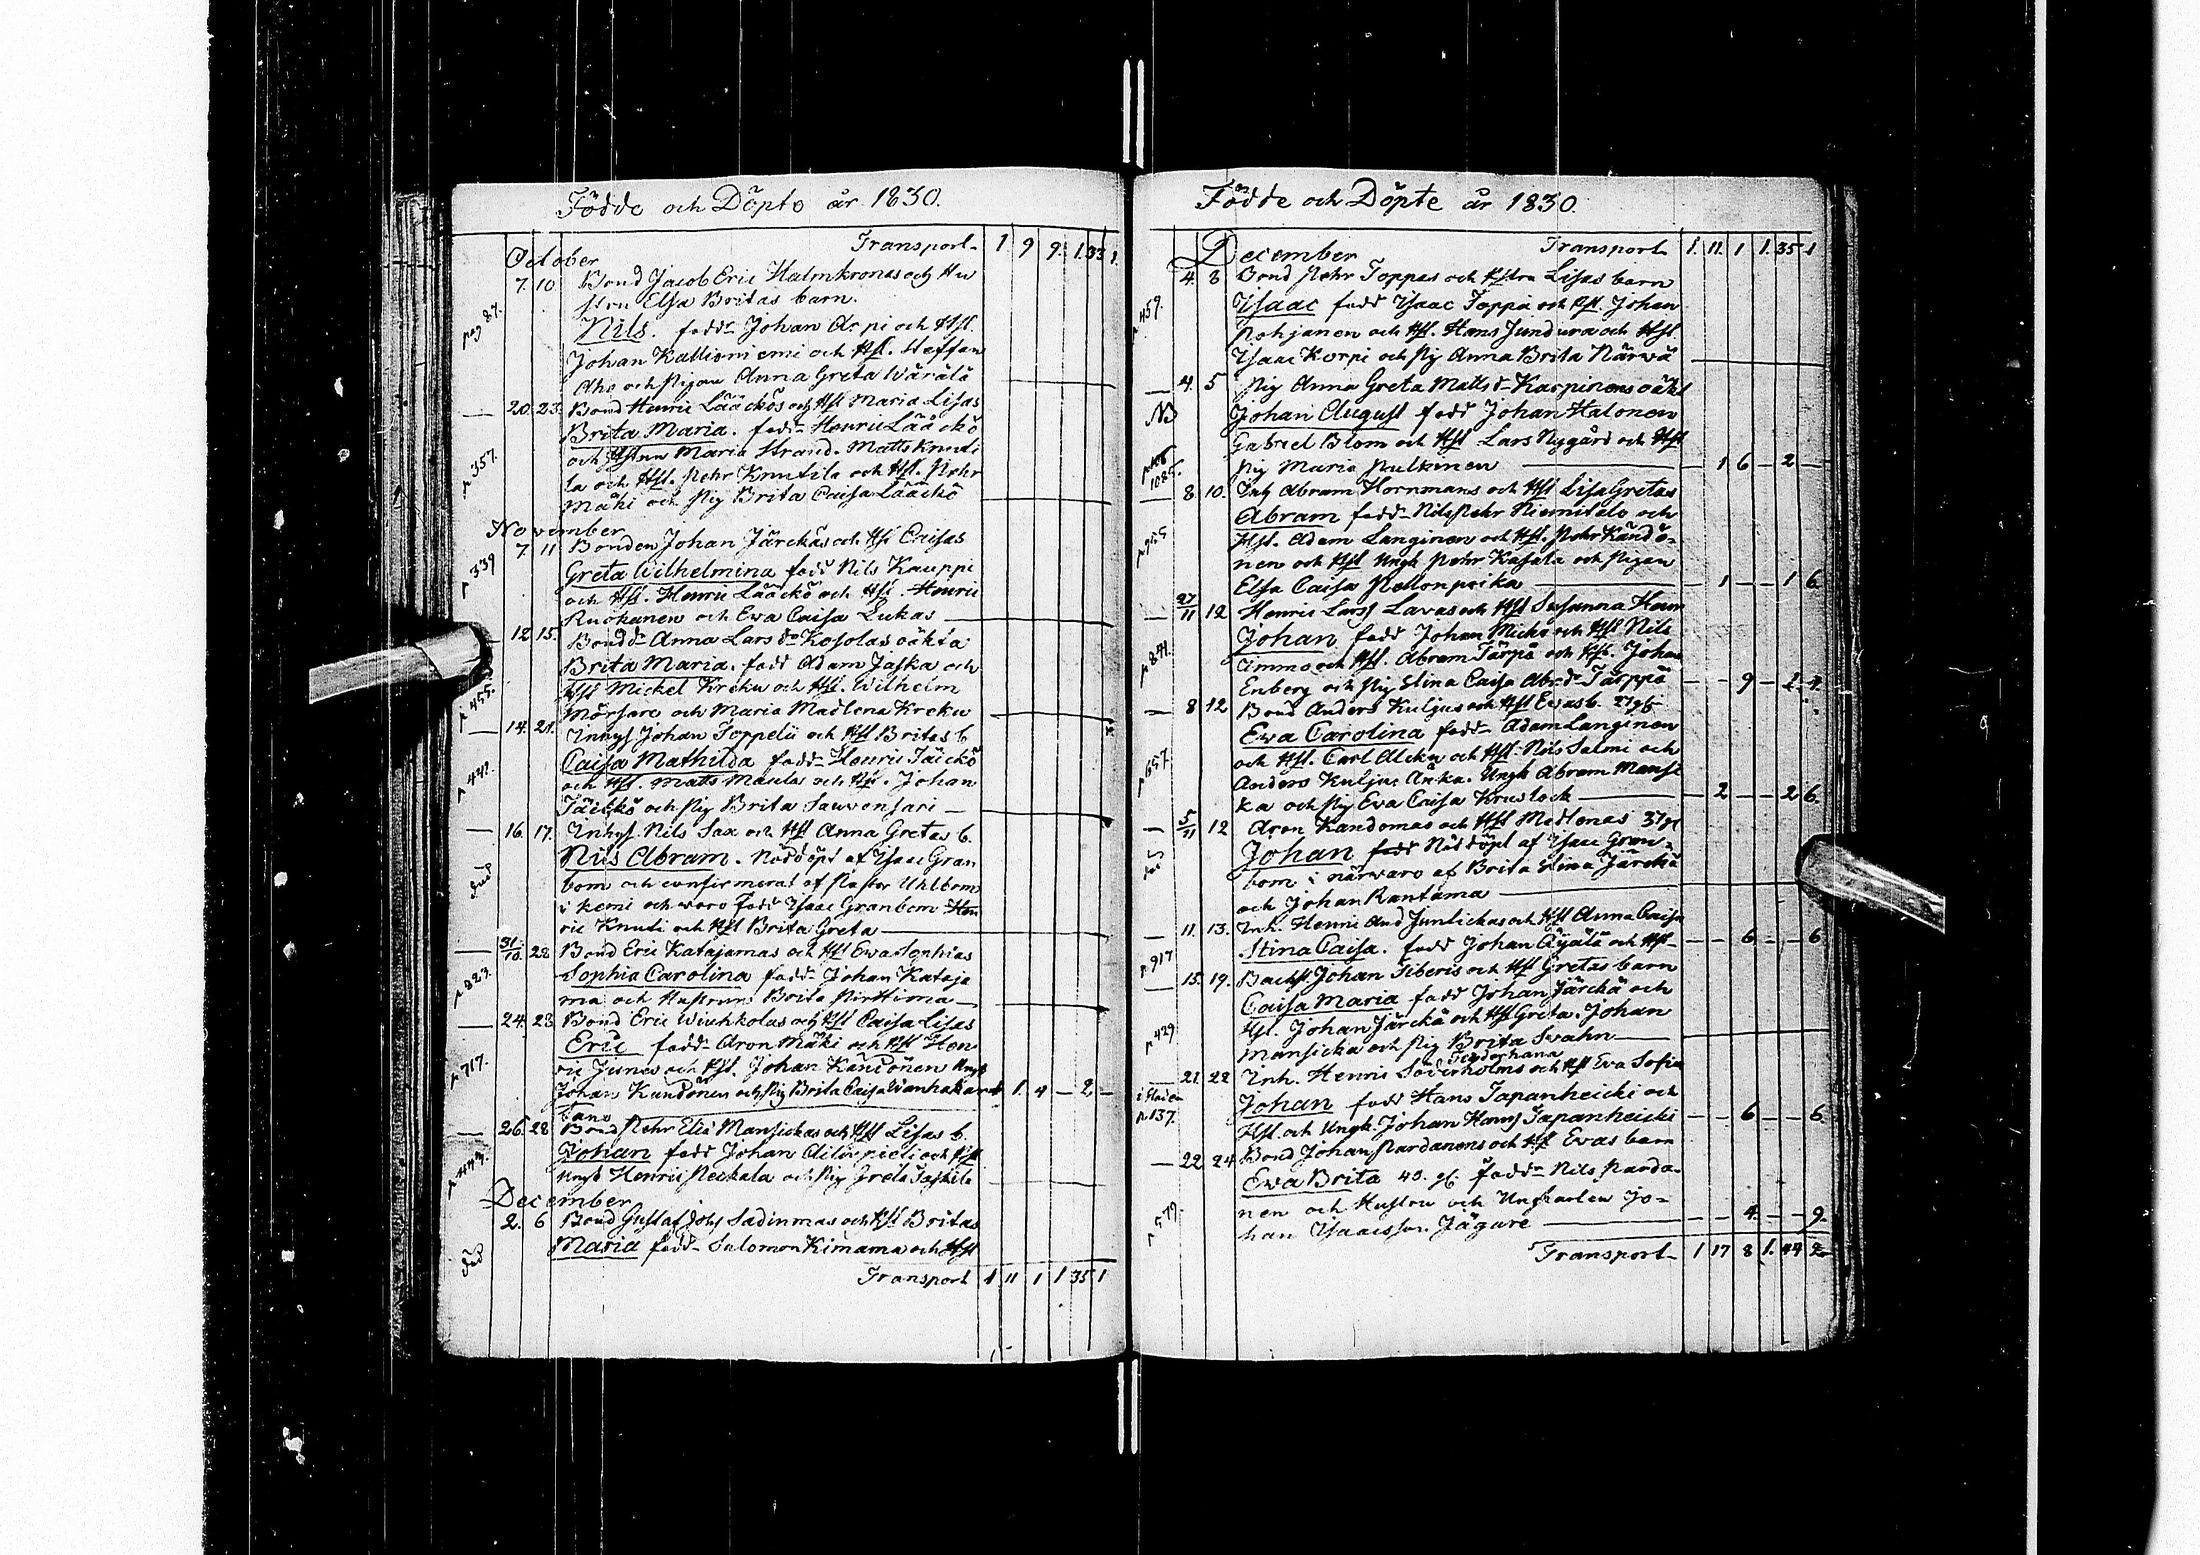 Födde och Döpte år 1830.
Transport 1 9 9. 1. 33 1.
October
pag 87.
7. 10 Bond Jacob Eric Halmkronas och Hu
stru Elsa Britas barn.
Nils. fadd Johan Arpi och Hst.
Johan Kallioniemi och Hst. Steffan
Aho och Pigan Anna Greta Wärälä
p 357.
20. 23. Bond Henric Lääckös och Hst Maria Lisas
Brita Maria. fadd Henric Lääckö
och Hstru Maria Strand. Matts Knuuti
la och Hst. Pehr Knutila och Hst. Pehr
Mäki och Pig Brita Caisa Lääckö
November
p 339
7 11 Bonden Johan Järckäs och Hst Caisas
Greta Wilhelmina fadd Nils Kauppi
och Hst. Henric Lääckö och Hst. Henric
Ruokanen och Ewa Caisa Lukas
p 455.
12 15. Bondd Anna Lars dr Kosolas oäkta
Brita Maria. fadd Adam Jaska och
Hst Mickel Kreku och Hst. Wilhelm
Mörsare och Maria Madlena Kreku
p 441.
14. 21. Inhys Johan Toppelii och Hst Britas b
Caisa Mathilda fadd Henric Jäickö
och Hst. Matts Maulas och Hu. Johan
Jäickö och Pig Brita Sauvensari
död
16. 17. Inhys. Nils Sax och Hst Anna Gretas b.
Nils Abram. Nöddöpt af Isaac Gran
bom och confirmerat af Pastor Uhlbom
i Kemi och woro fadd Isaac Granbom Hen
ric Knuti och Hst Brita Greta
p 823.
31/10. 22 Bond Eric Katajamas och Hst Ewa Sophias
Sophia Carolina fadd Johan Kataja
ma och Hustrun Brita Pirttima
p 717.
24. 23 Bond Eric Wiuhkolas och Hst Caisa Lisas
Eric fadd Aron Mäki och Hst Hen
ric Junes och Hst. Johan Kandönen Ungk
Johan Kandönen och Pig Brita Caisa 1. 4 — 2 —
26. 28 Bond Pehr Elia Mansickas och Hst Lisas b.
Johan fadd Johan och Hst
Ungk Henric Peckala och Pig Greta
December
död
2. 6 Bond Gustaf Johs Sadinmas och Hst Britas
Maria fadd Salomon Kimama och Hst
Transport 1 11 1 1 35 1
Födde och Döpte år 1830.
Transport 1. 11. 1 1. 35 1
December
p 459.
4. 8 Bond Pehr Toppas och Hstru Lisas barn
Isaac fadd Isaac Toppa och Hst. Johan
Pohjanen och Hst. Hans Jundura och Hst.
Isaac Korpi och Pig Anna Brita Närwä
NB
4. 5 Pig Anna Greta Matts d. Karpinens oäkt
Johan August fadd Johan Halonen
Gabriel Blom och Hst Lars Nygård och Hst
Pig Maria Pulkinen — 1 6 — 2 —
1085.
8 10. Inh Abram Hornmans och Hst Lisa Gretas
Abram fadd Nils Pehr Niemitalo och
Hst. Adam Langinen och Hst. Pehr Kandö-
nen och Hst Ungk Pehr Kasala och Pigan
Elsa Caisa Pellonpeika — 1 — — 1 6
p 841.
27/11 12 Henric Larss Lavas och Hst Susanna
Johan fadd Johan Micko och Hst Nils
Cimmo och Hst. Abram Tärpä och Hst. Johan
Enberg och Pig Stina Caisa Abr.d. Tärppä — — 9 — 2
p 657.
8 12 Bond Anders Kuljus och Hst Ewas b.
Ewa Carolina fadd Adam Langinen
och Hst. Carl Alcku och Hst. Nils Salmi och
Anders Kulju Änka. Ungk Abram Mansi
ka och Pig Ewa Caisa Kruslock — 2 — — 2 6.
död
5/11 12 Aron Kandomas och Hst Medlenas 37gl
Johan Nöddöpt af Isaac Gran-
bom i närwaro af Brita Stina Järckä
och Johan Rantama
p. 917
11. 13. Inh. Henric And Junlickas och Hst Anna Caisa
Stina Caisa. fadd Johan Äyälä och Hst — — 6 — — 6
p 429
15. 19. Backst Johan Siberis och Hst Gretas barn
Caisa Maria fadd Johan Järckä och
Hst. Johan Järckä och Hst Greta. Johan
Mansicka och Pig Brita Svahn
i Staden
p 137.
21. 22 Inh. Henric Söderholms och Hst Eva Sofia
Johan fadd Hans Tapanheicki och
Hst. och Ungk. Johan Hanss Tapanheicki — — 6 — — 6.
p 579.
22. 24 Bond Johan Pardanens och Hst Evas barn
Ewa Brita 40. gl. fadd Nils Parda-
nen och Hustru och Ungkarlen Jo-
han Isaacsson. Jägare — — 4. — — 9.
Transport 1 17 8 1. 44 2